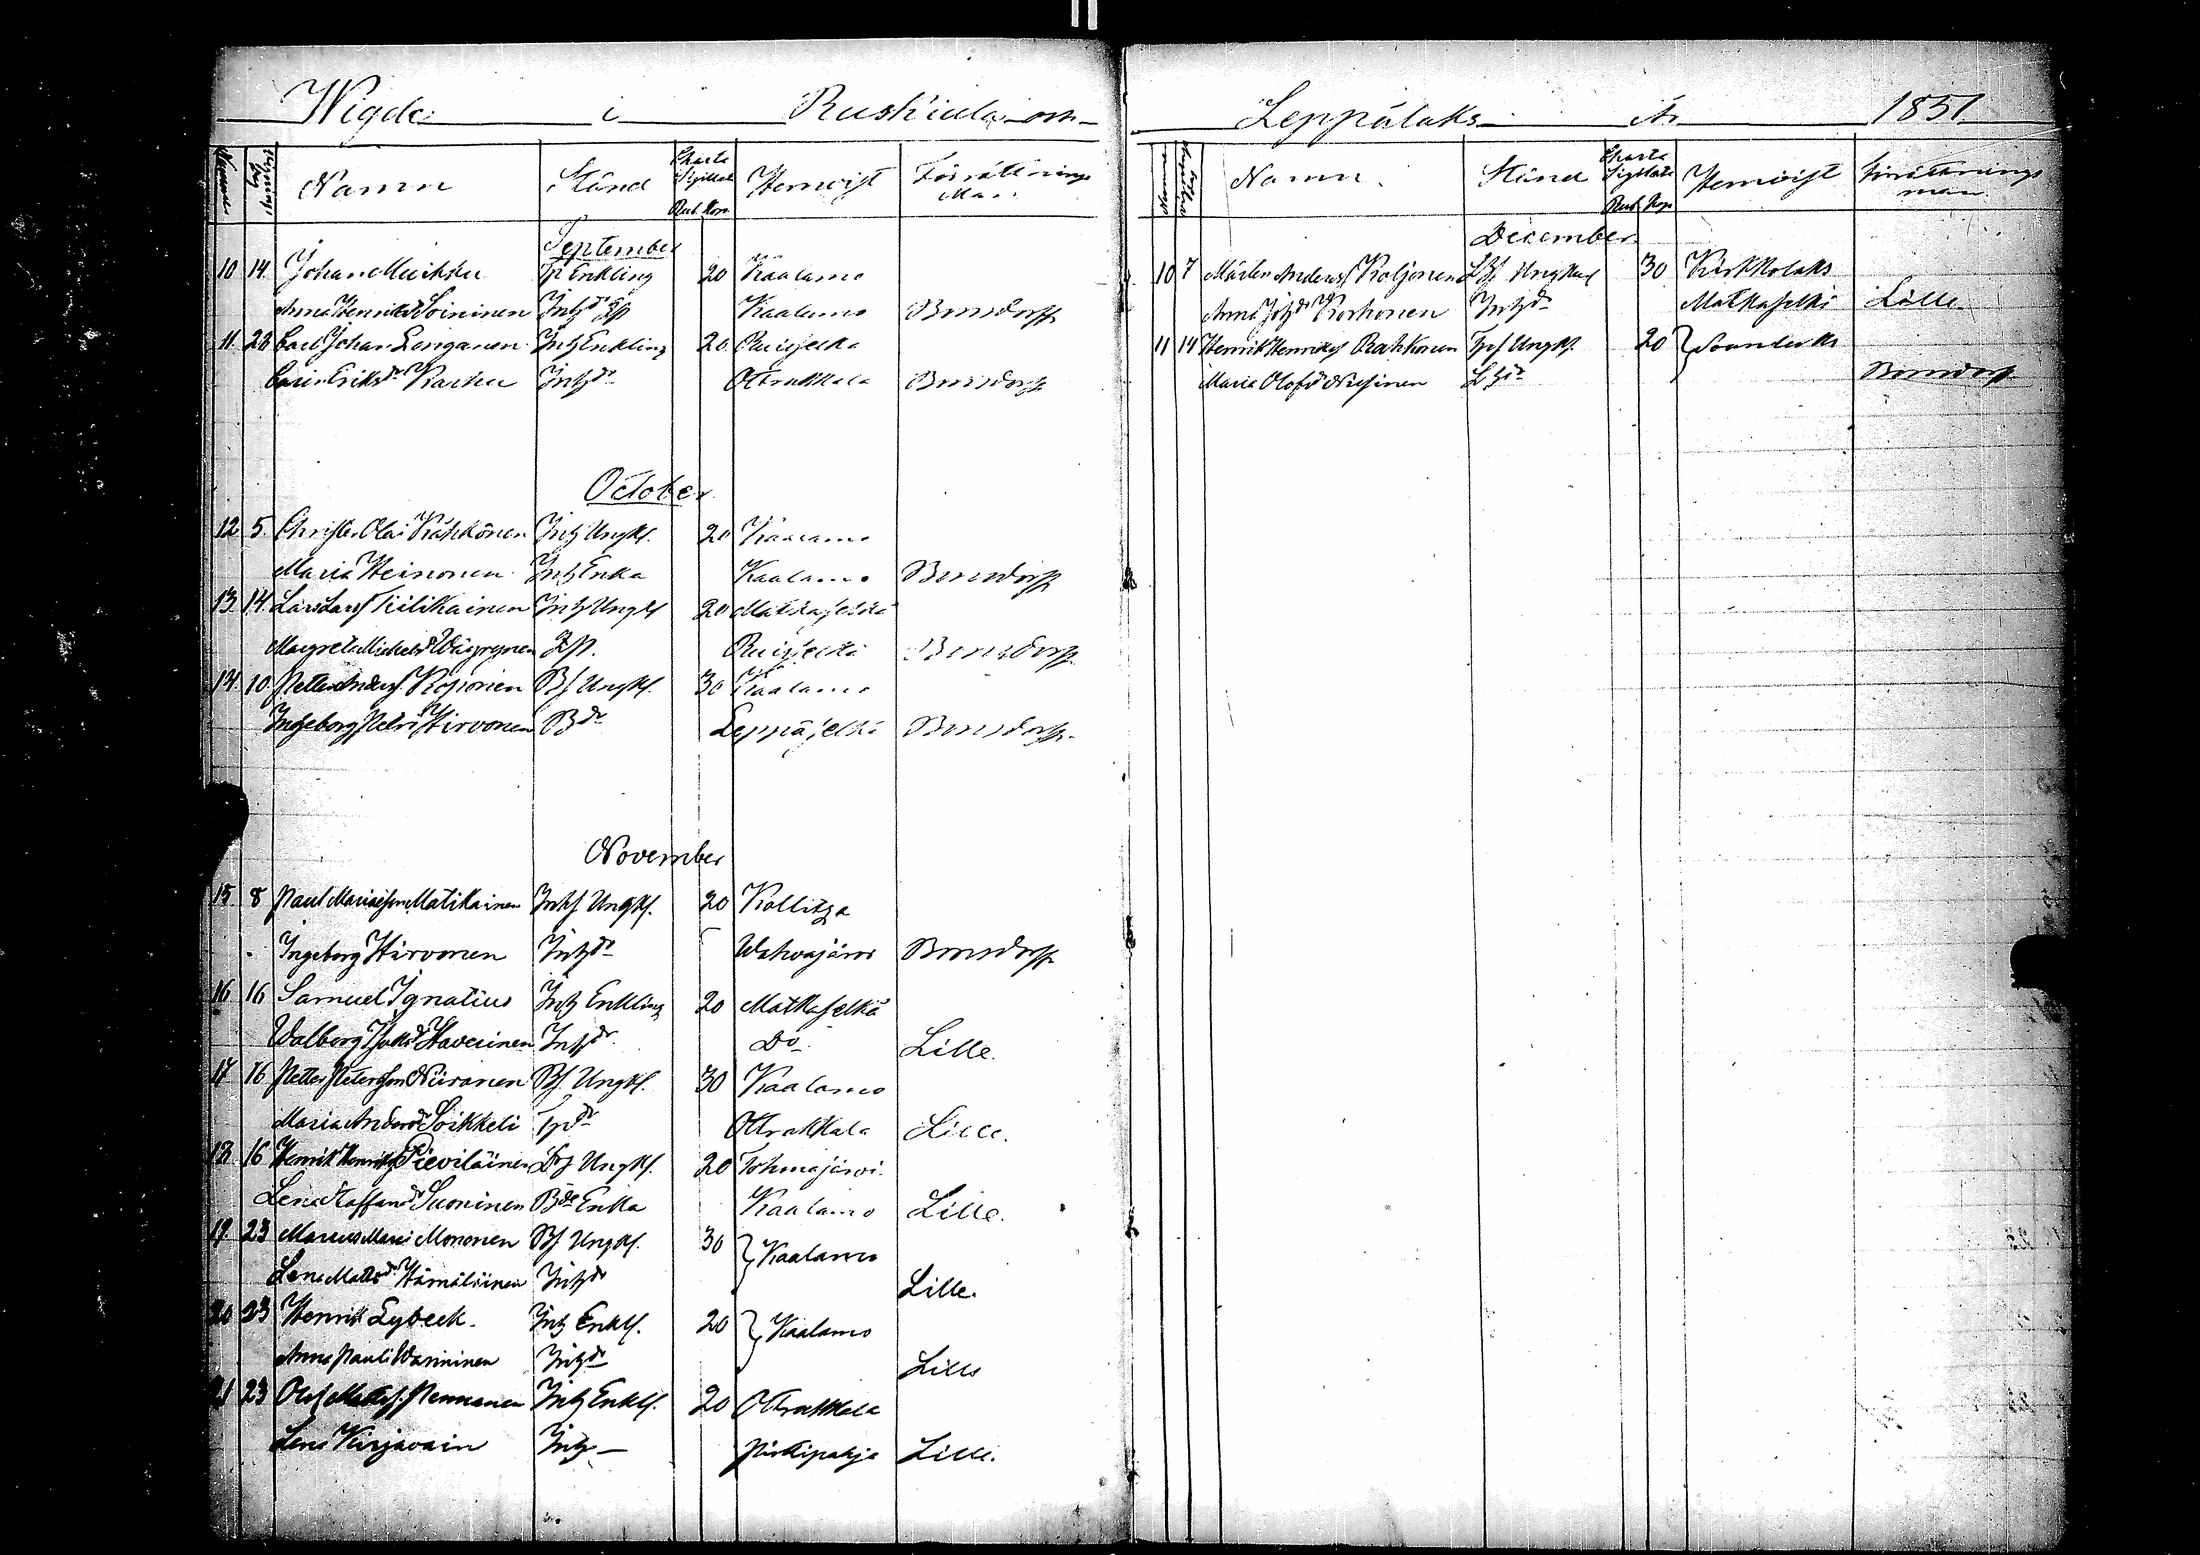 Wigde i Ruskiala och
Namn Stånd Charta Sigillat. Rub. Kop. Hemvist Förrättnings Man.
September
10 14 Johan Muikku Tp Enkling 20 Kaalamo
Anna Henriksdr Soininen Inhdr Kaalamo Bonsdorff
11. 28 Carl Johan Enganen Inh Enkling 20 Ruisselkä
Carin Eriksdr Karhu Inhdr Otrakkala Bonsdorff
October
12 5. Christer Olai Kähkönen Inh Ungkl. 20 Kaalamo
Maria Heinonen Inh Enka Kaalamo Bonsdorff
13 14 Lars Larss Kilikainen Inh Ungkl 20 Matkaselkä
Margreta Michelsdr Wäyrynen Pp. Ruisselkä Bonsdorff
14 10. Petter Anderss. Roponen Bs Ungkl. 30 Kaalamo
Ingeborg Petri Hirvonen Bdr Leppäselkä Bonsdorff
November
15 8 Paul Mariaeson Matikainen Inhs Ungkl. 20 Kollitza
Ingeborg Hirvonen Inhdr Wahvajärvi Bonsdorff
16 16 Samuel Ignatius Inh Enkling 20 Matkaselkä
Walborg Haverinen Inhdr Do Lille.
17 16 Petter Petersson Niiranen Bs Ungkl. 30 Kaalamo
Maria Andersdr Soikkeli Tpdr Otrakkala Lille.
18 16 Henrik Henriks Pieviläinen Ls Ungkl. 20 Tohmajärvi
Lena Staffansdr Suoninen Bde Enka Kaalamo Lille.
19 23 Marcus Marci Mononen Bs Ungkl. 30 Kaalamo
Lena Matsdr Hämäläinen Inhdr Lille.
20 23 Henrik Lybeck. Inh Enkl. 20 Kaalamo
Anna Pauli Warninen Inhdr Lille
21 23 Olof Matss. Pennanen Inh Enkl. 20 Otrakkala
Lena Kirjavain Inh Pirkipohja Lille.
Leppälaks År 1851.
Namn. Stånd Charta Sigillat. Rub. Kop Hemvist Förrättnings man
December
10 7 Mårten Anderss Koljonen Lbs Ungkarl 30 Kirkkolaks
Anna Korhonen Inhdr Matkaselki Lille
11 14 Henrik Henrikss Rahkonen Tps Ungkl. 20 Soanlaks
Maria Olofsdr Nissinen Lbdr Bonsdorff